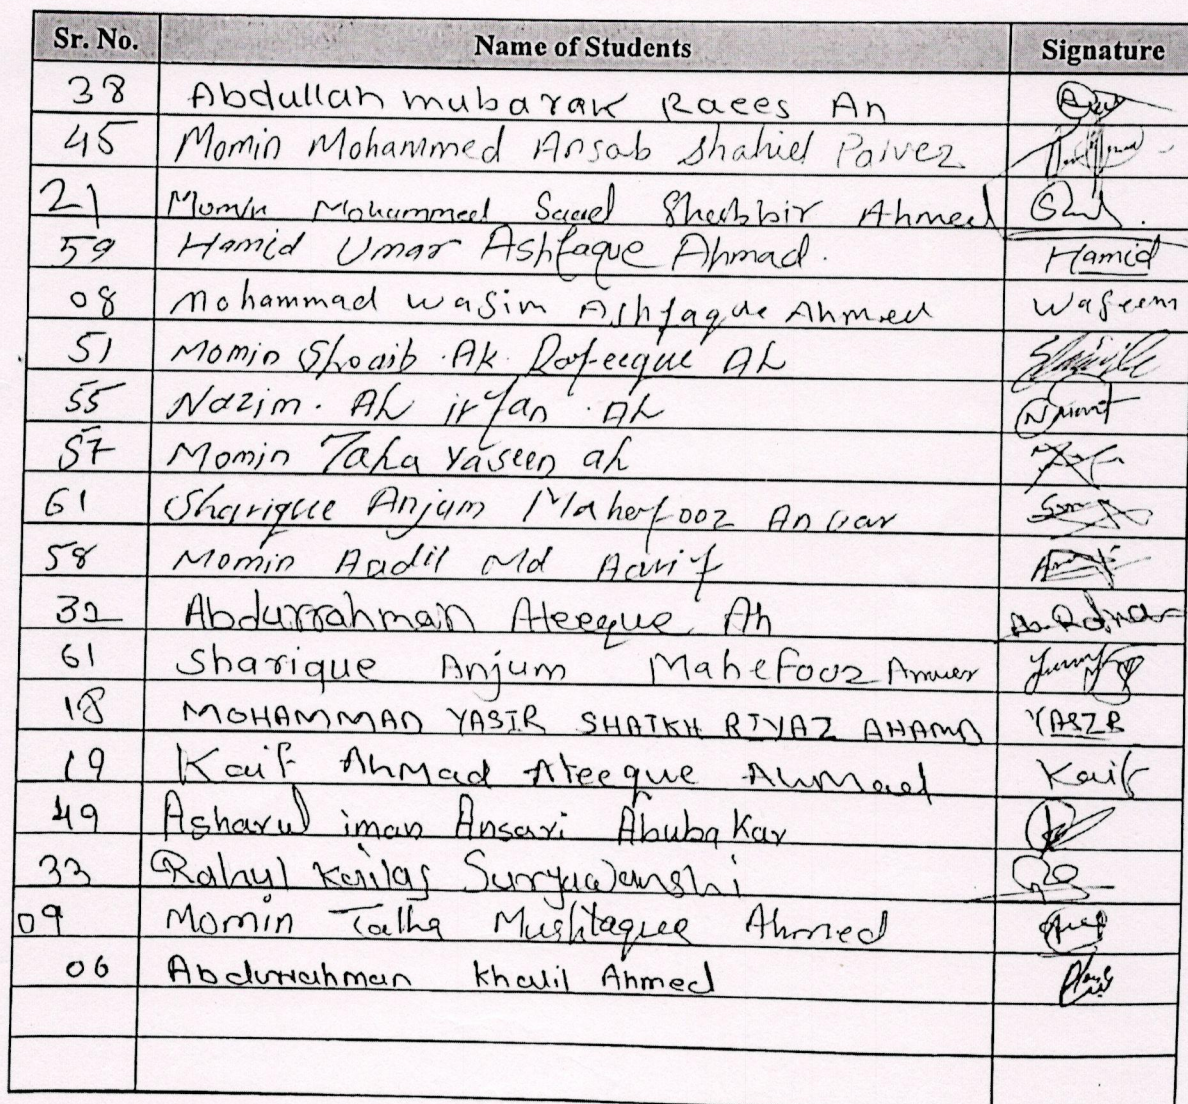 Sr. No. Name of Students Signature
38 Abdullah mubarak Raees An
45 Momin Mohammed Ansab Shahid Paivez
21 Momin Mohammed Saad Shabbir Ahmed
59 Hamid Umar Ashfaque Ahmad. Hamid
08 Mohammad wasim Ashfaque Ahmed Waseem
51 Momin Shoaib .Ak. Rafeeque Ah
55 Nazim. Ah irfan .Ah
57 Momin Taha Yaseen ah
61 Sharique Anjum Mahefooz Anvar
58 Momin Aadil Md Aarif
32 Abdurrahman Ateeque Ah
61 Sharique Anjum Mahefooz Anwer
18 MOHAMMAD YASIR SHAIKH RIYAZ AHAMD YASIR
19 Kaif Ahmad Ateeque Ahmad Kaif
49 Asharul iman Ansari Abubakar
33 Rahul Kailas Suryawanshi
09 Momin Talha Mushtaque Ahmed
06 Abdurrahman Khalil Ahmed